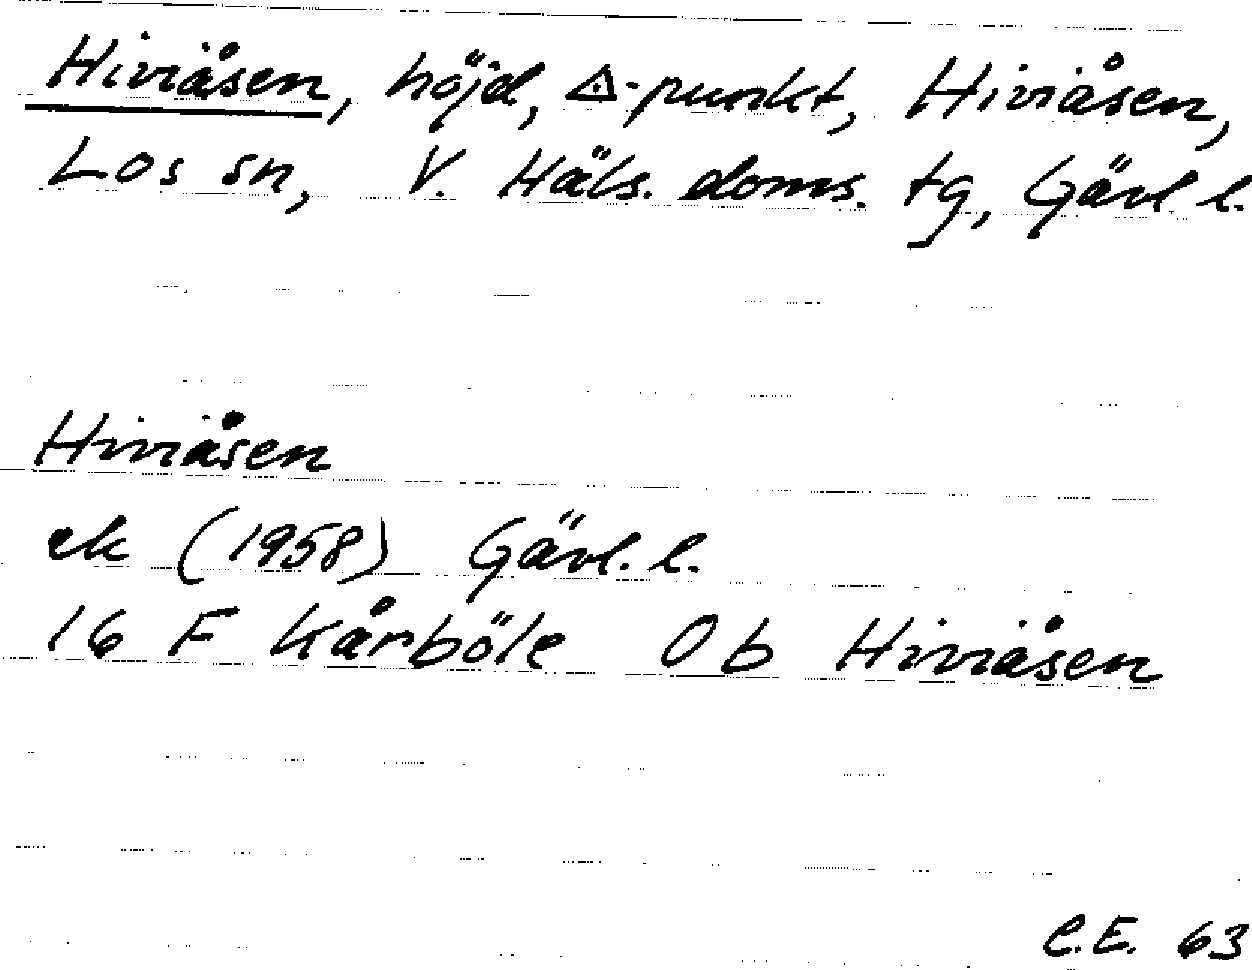 Hiviåsen, höjd, △-punkt, Hiviåsen,
Los sn, V. Häls. doms. tg, Gävl l.
Hiviåsen
ek (1958) Gävl. l.
16 F Kårböle 0 b Hiviåsen
C.E. 63